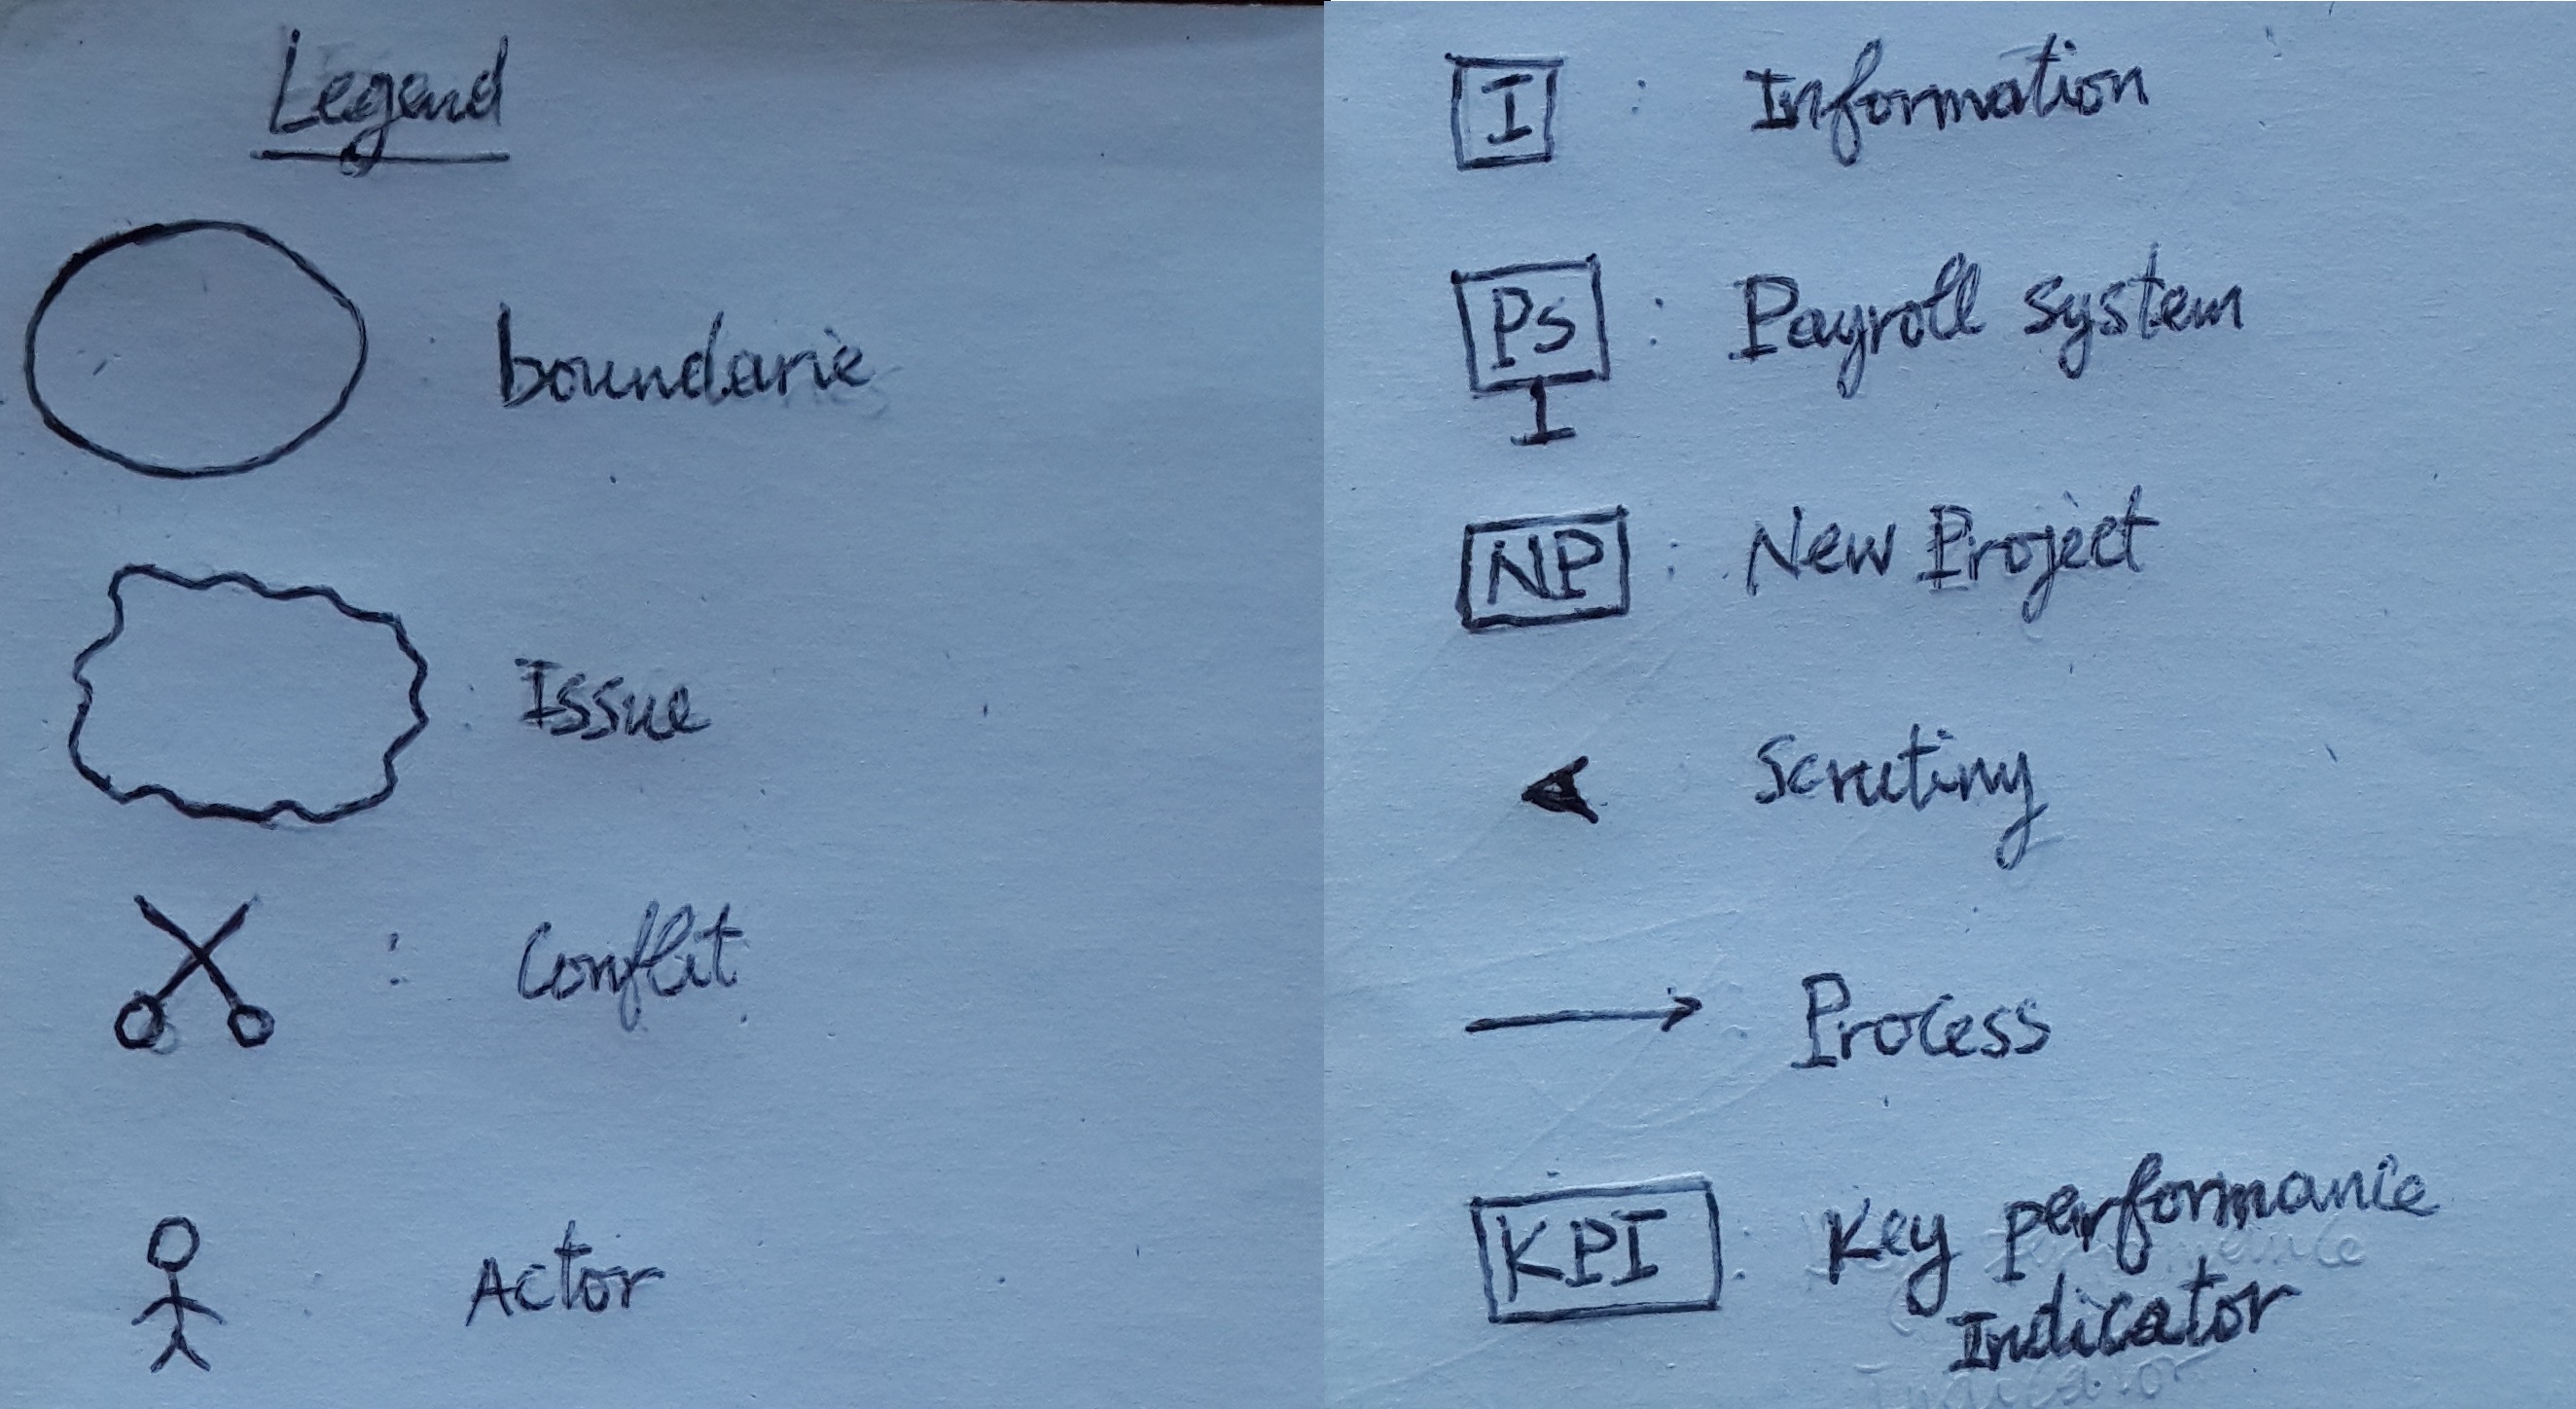 Legend
: boundarie
: Issue
: Conflit
: Actor
I : Information
PS : Payroll system
NP : New Project
Scrutiny
: Process
KPI : Key performance
Indicator